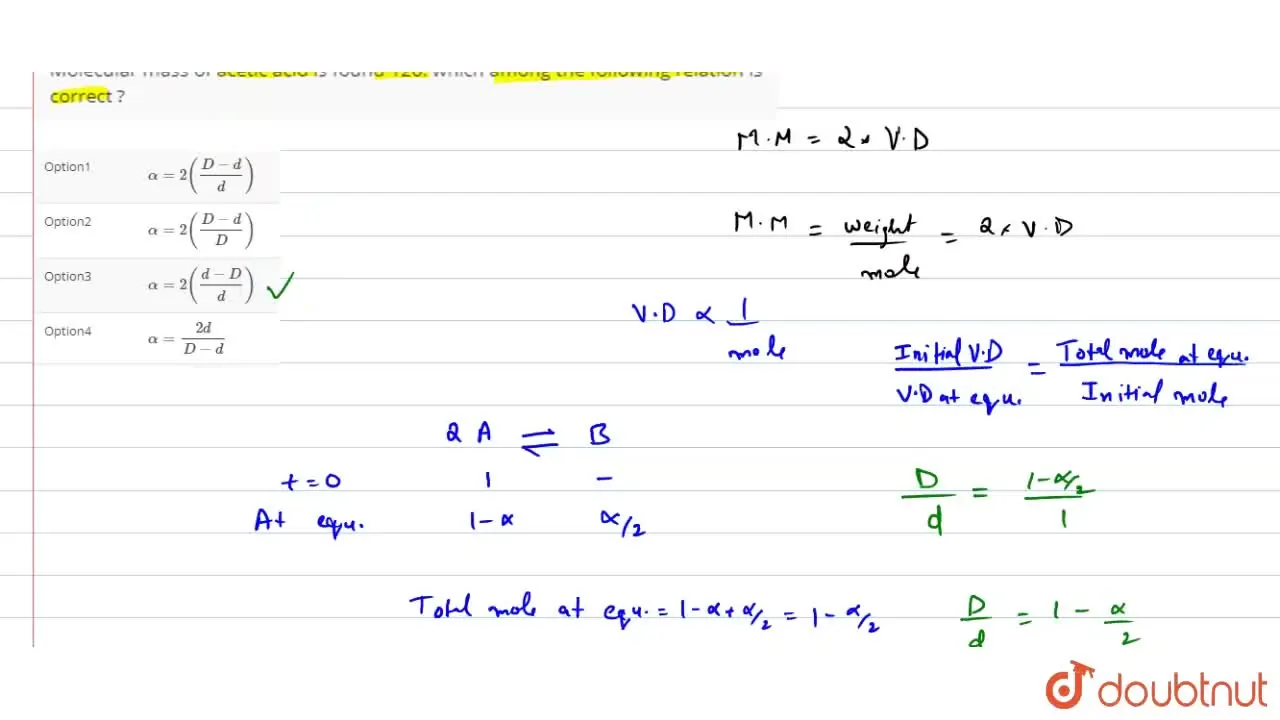 Molecular mass of acetic acid is found 120. which among the following relation is
correct ?
Option1 α = 2((D − d)/d)
Option2 α = 2((D − d)/D)
Option3 α = 2((d − D)/d) ✓
Option4 α = 2d/(D − d)
M.M = 2 × V.D
M.M = weight/mole = 2 × V.D
V.D ∝ 1/mole
Initial V.D/V.D at equ. = Total mole at equ./Initial mole
2 A ⇌ B
t = 0 1 −
At equ. 1 − α α/2
D/d = (1 − α/2)/1
Total mole at equ. = 1 − α + α/2 = 1 − α/2
D/d = 1 − α/2
doubtnut